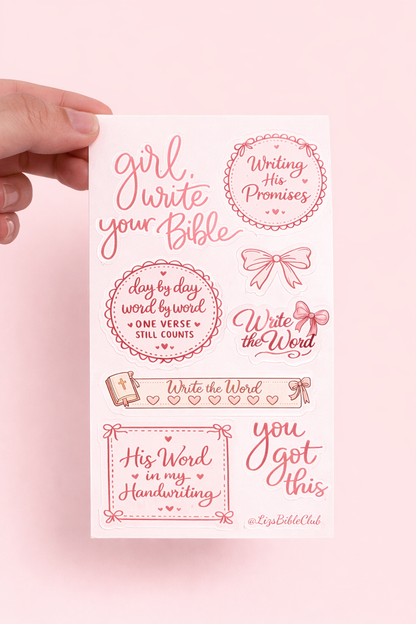 girl,
write
your Bible
Writing
His
Promises
day by day
word by word
ONE VERSE
STILL COUNTS
Write
the Word
Write the Word
His Word
in my
Handwriting
you
got
this
@LizsBibleClub